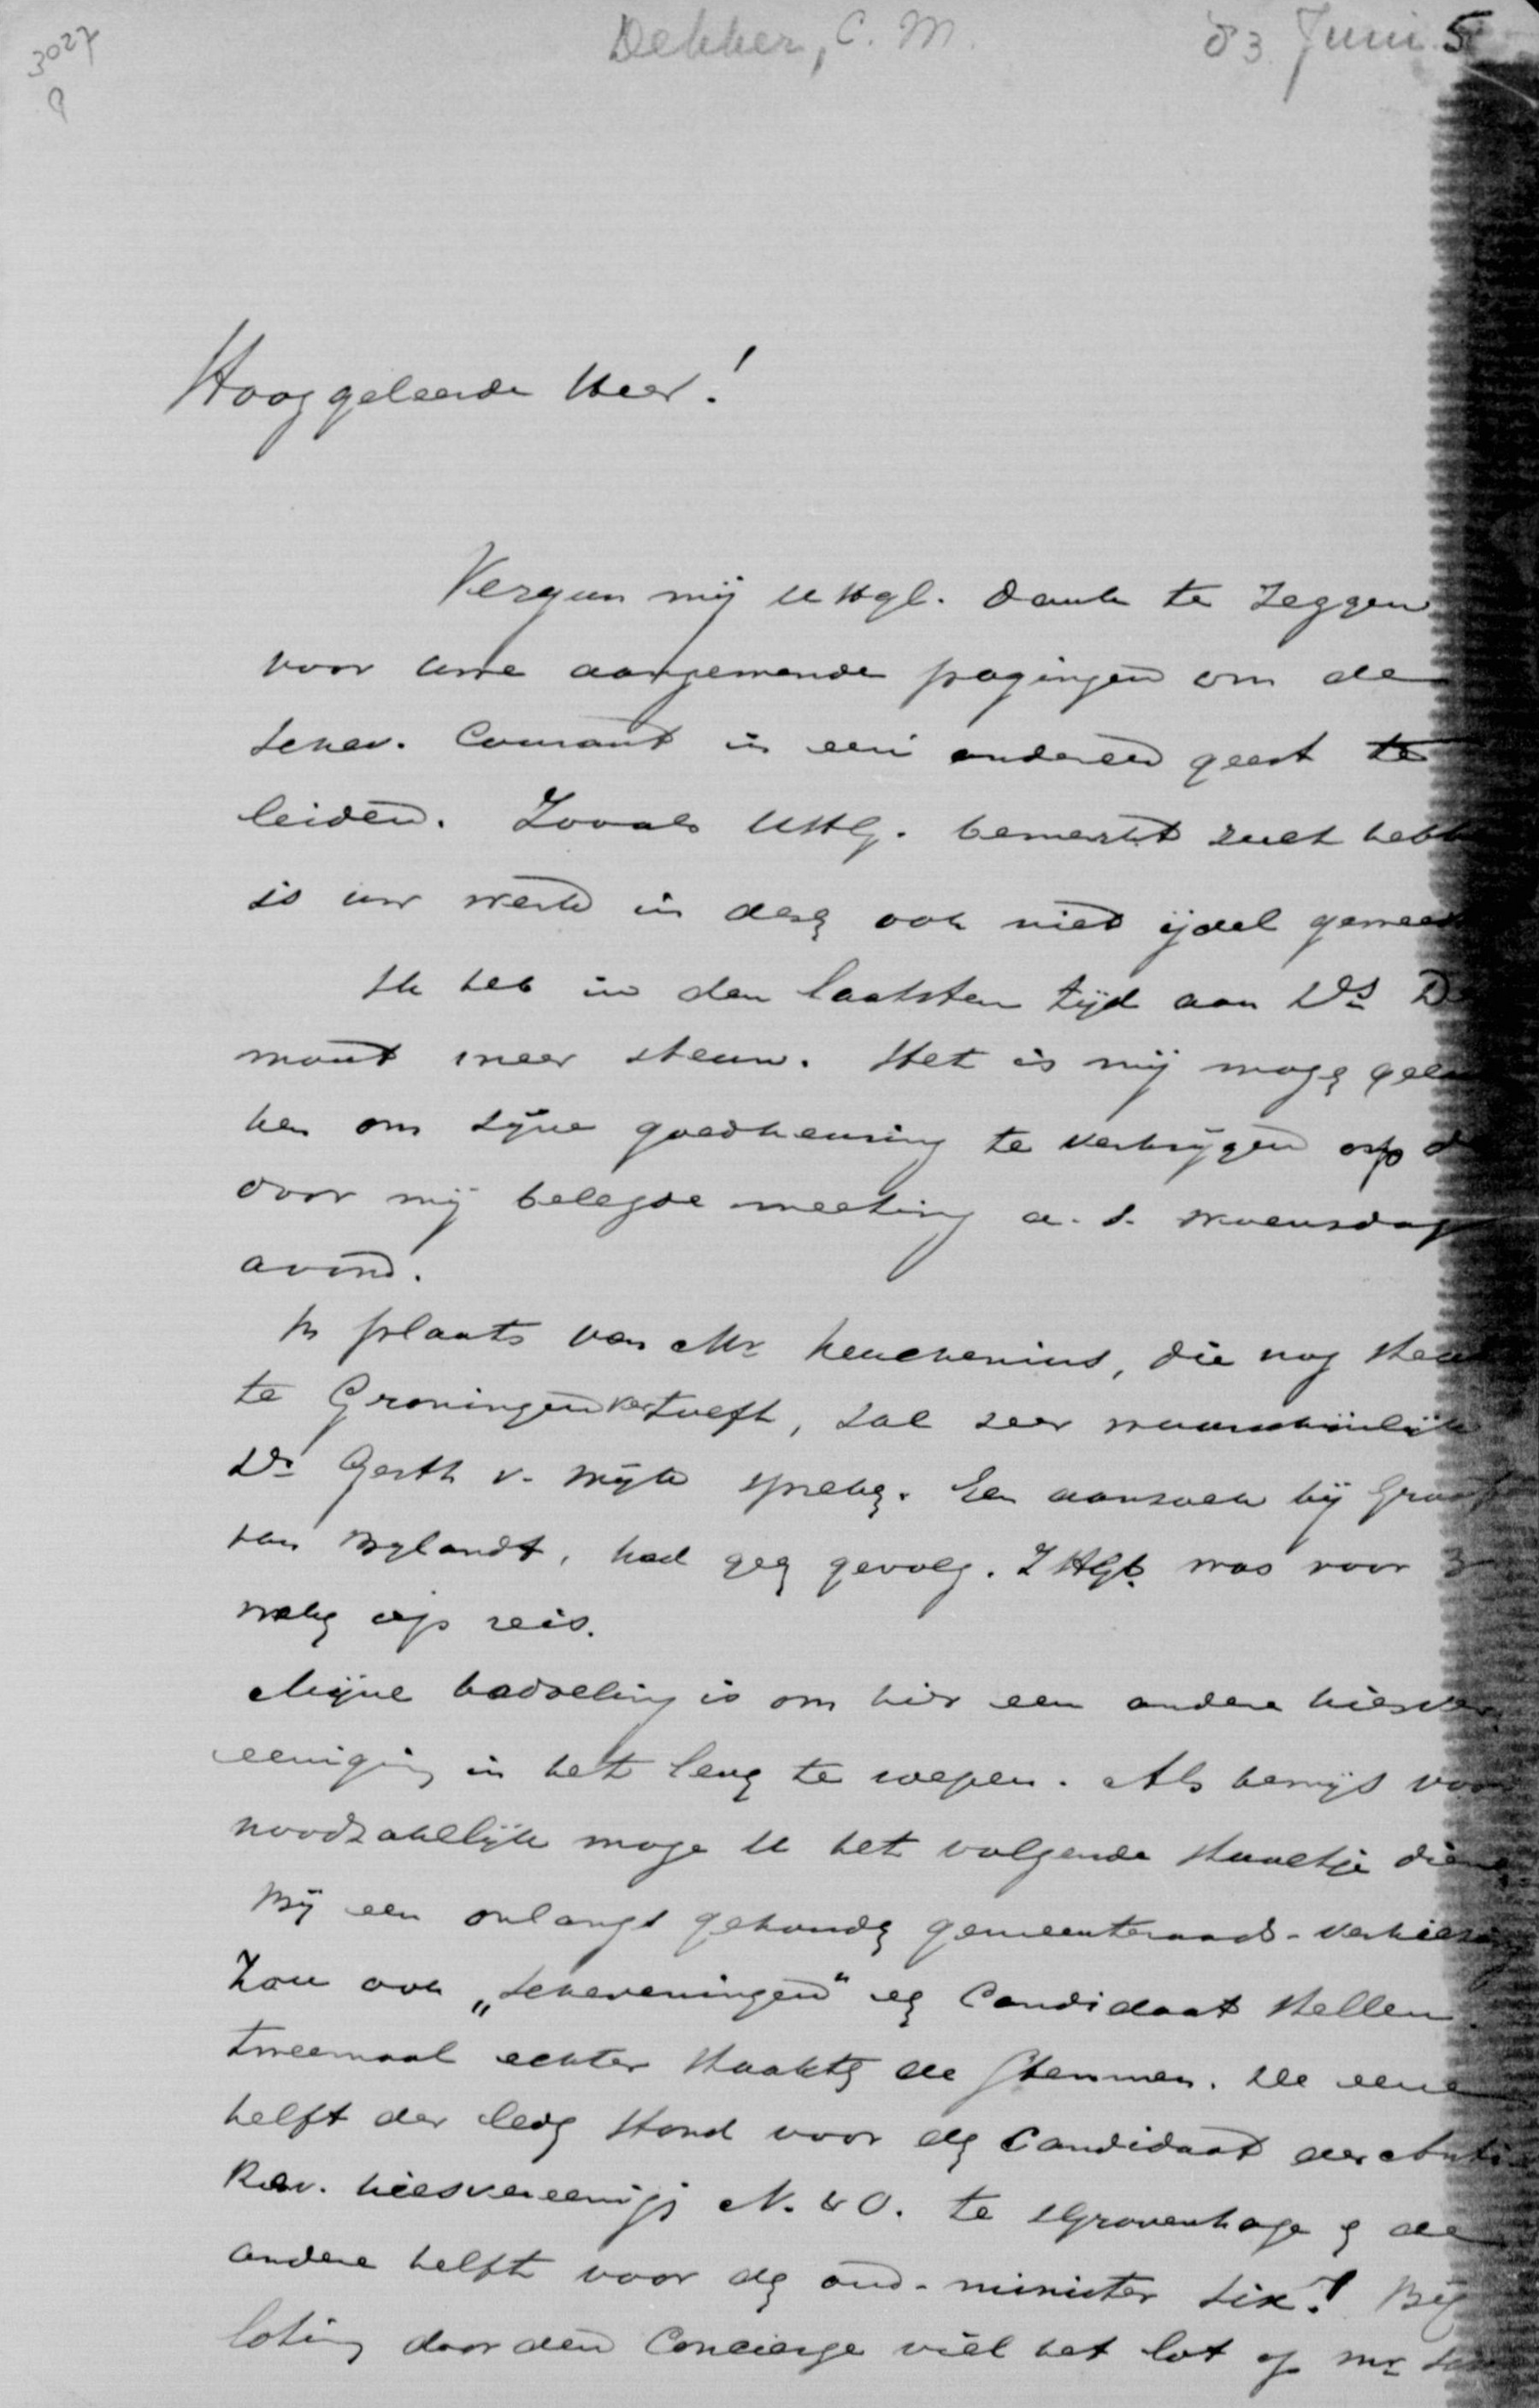 3027
Dekker, C. M. 83 Juni 5
Hooggeleerde Heer!
Vergun mij UHgl. dank te zeggen
voor uwe aangewende pogingen om de
Schev. Courant in een anderen geest te
leiden. Zooals UHlg. bemerkt zult hebb
is uw werk in deze ook niet ijdel gewees
Ik heb in den laatsten tijd aan Ds D
mont meer steun. Het is mij mogen geluk
ken om zijne goedkeuring te verkrijgen op d
door mij belegde meeting a. s. Woensdag
avond.
In plaats van Mr Keuchenius, die nog steeds
te Groningen vertoeft, zal zeer waarschijnlijk
Dr Gerth v. Wijk spreken. Een aanzoek bij Graaf
van Bylandt, had geen gevolg. ZHGb. was voor 3
weken op reis.
Mijne bedoeling is om hier een andere kiesver
eeniging in het leven te roepen. Als bewijs voor
noodzakelijk moge U het volgende staaltje dienen
Bij een onlangs gehouden gemeenteraads-verkiezing
zou ook „Scheveningen" een Candidaat stellen.
Tweemaal echter staakten de stemmen. De eene
helft der leden stond voor den Candidaat der Anti
Rev. kiesvereenig N. & O. te sGravenhage en de
andere helft voor den oud-minister Six! Bij
loting door den Concierge viel het lot op Mr Six